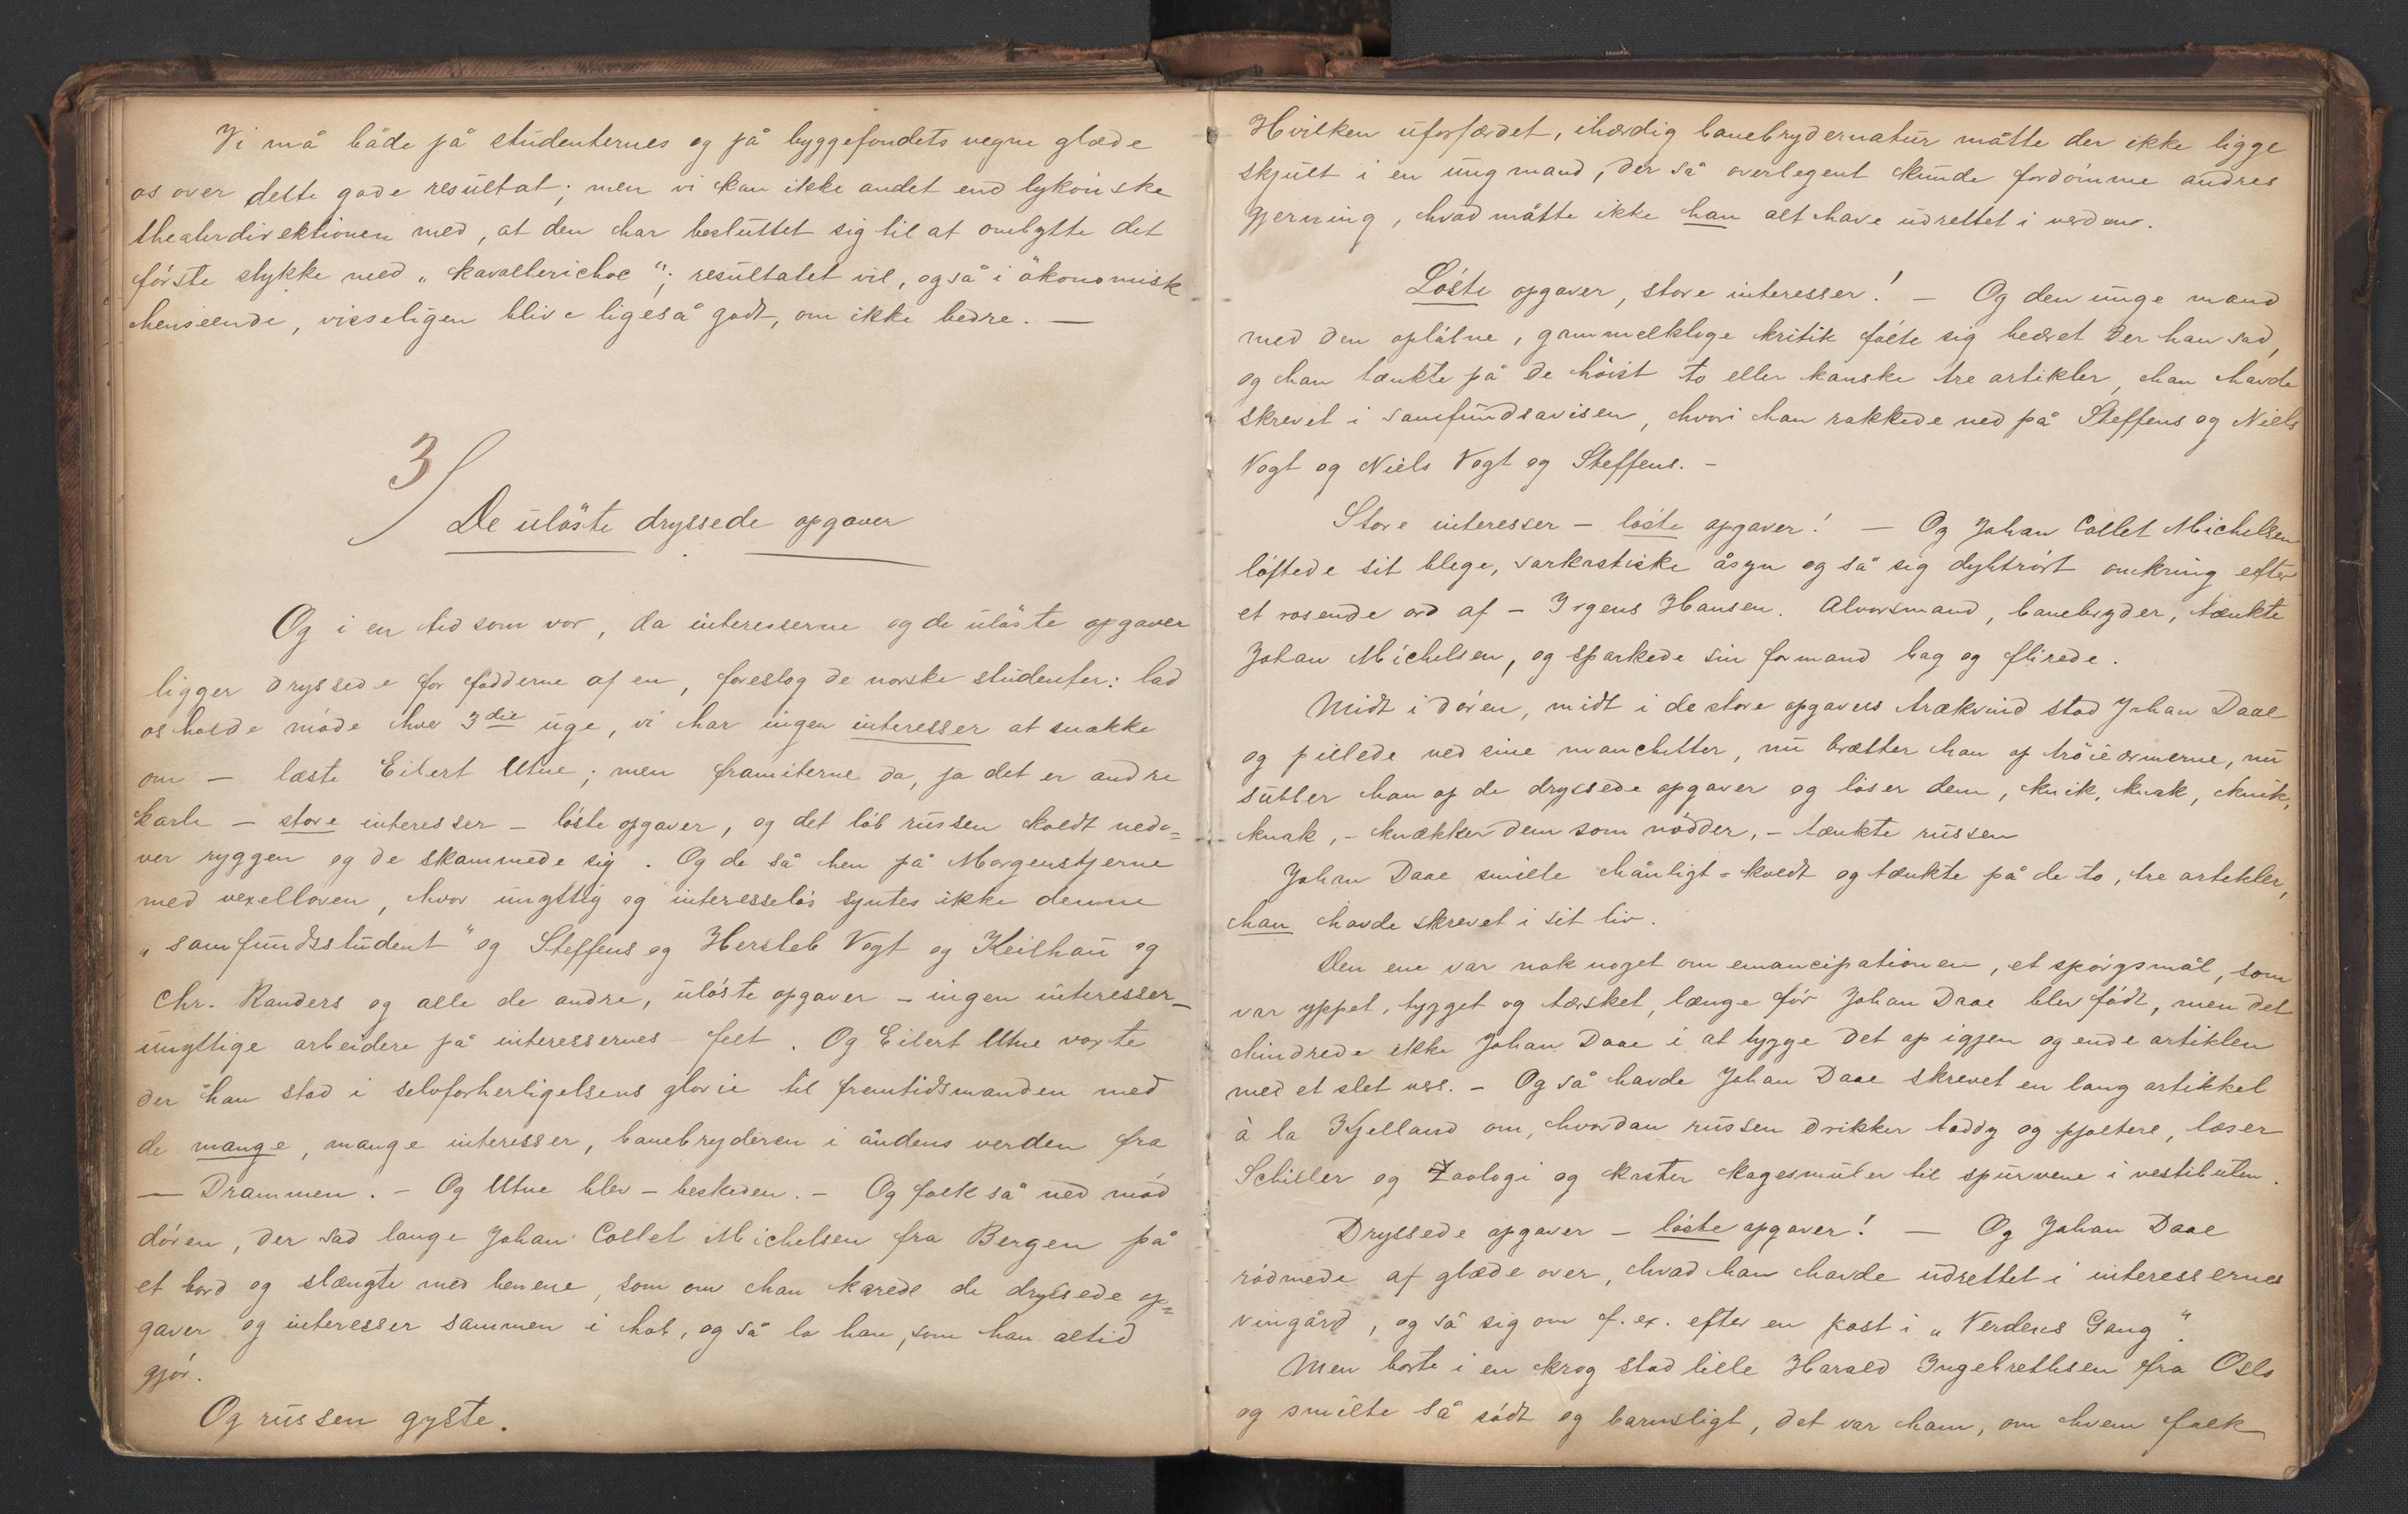 Vi må både på studenternes og på byggefondets vegne glæde
os over dette gode resultat; men vi kan ikke andet end lykönske
theaterdirektionen med, at den har besluttet sig til at ombytte det
förste stykke med „kavallerichoc“; resultatet vil, også i ökonomisk
henseende, visseligen blive ligeså godt, om ikke bedre. —
3/
De ulöste dryssede opgaver
Og i en tid som vor, da interesserne og de ulöste opgaver
ligger dryssede for födderne af en, foreslog de norske studenter: lad
os holde möde hver 3die uge, vi har ingen interesser at snakke
om — læste Eilert Utne; men framiterne da, ja det er andre
karle — store interesser – löste opgaver, og det löb russen koldt nedo=
ver ryggen og de skammede sig. Og de så hen på Morgenstjerne
med vexelloven, hvor unyttig og interesselös syntes ikke denne
„samfundsstudent“ og Steffens og Hersleb Vogt og Keilhau og
Chr. Randers og alle de andre, ulöste opgaver – ingen interesser –
unyttige arbeidere på interessernes felt. Og Eilert Utne voxte
der han stod i selvforherligelsens glorie til fremtidsmanden med
de mange, mange interesser, banebryderen i åndens verden fra
— Drammen. – Og Utne blev – beskeden. – Og folk så ned mod
dören, der sad lange Johan Collet Michelsen fra Bergen på
et bord og slængte med benene, som om han karede de dryssede op=
gaver og interesser sammen i hob, og så lo han, som han altid
gjör.
Og russen gyste.
Hvilken uforfærdet, ihærdig banebrydernatur måtte der ikke ligge
skjult i en ung mand, der så overlegent kunde fordömme andres
gjerning, hvad måtte ikke han alt have udrettet i verden.
Löste opgaver, store interesser! — Og den unge mand
med den oplåtne, gammelkloge kritik fölte sig beæret der han sad,
og han tænkte på de höist to eller kanske tre artikler, han havde
skrevet i samfundsavisen, hvori han rakkede ned på Steffens og Niels
Vogt og Niels Vogt og Steffens. –
Store interesser – löste opgaver! — Og Johan Collet Michelsen
löftede sit blege, sarkastiske åsyn og så sig dybtrört omkring efter
et rosende ord af – Irgens Hansen. Alvorsmand, banebryder, tænkte
Johan Michelsen, og sparkede sin formand bag og flirede.
Midt i dören, midt i de store opgavers trækvind stod Johan Daae
og pillede ved sine manchetter, nu brætter han op tröieærmerne, nu
subler han op de dryssede opgaver og löser dem, knik, knak, knik,
knak, – knækker dem som nödder, – tænkte russen
Johan Daae smilte hånligt-koldt og tænkte på de to, tre artikler,
han havde skrevet i sit liv.
Den ene var nok noget om emancipationen, et spörgsmål, som
var yppet, tygget og tærsket, længe för Johan Daae blev födt, men det
hindrede ikke Johan Daae i at tygge det op igjen og ende artiklen
med et slet vers. – Og så havde Johan Daae skrevet en lang artikkel
à la Kjelland om, hvordan russen drikker toddy og pjoltere, læser
Schiller og Zoologi og kaster kagesmuler til spurvene i vestibulen.
Dryssede opgaver – löste opgaver! — Og Johan Daae
rödmede af glæde over, hvad han havde udrettet i interessernes
vingård, og så sig om f. ex. efter en post i „Verdens Gang“.
Men borte i en krog stod lille Harald Ingebrethsen fra Oslo
og smilte så södt og barnsligt, det var ham, om hvem folk